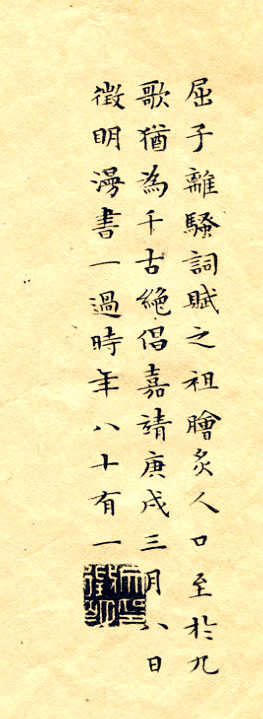 屈子離騷詞賦之祖膾炙人口至於九
歌猶為千古絕倡嘉靖庚戌三月八日
徵明漫書一過時年八十有一